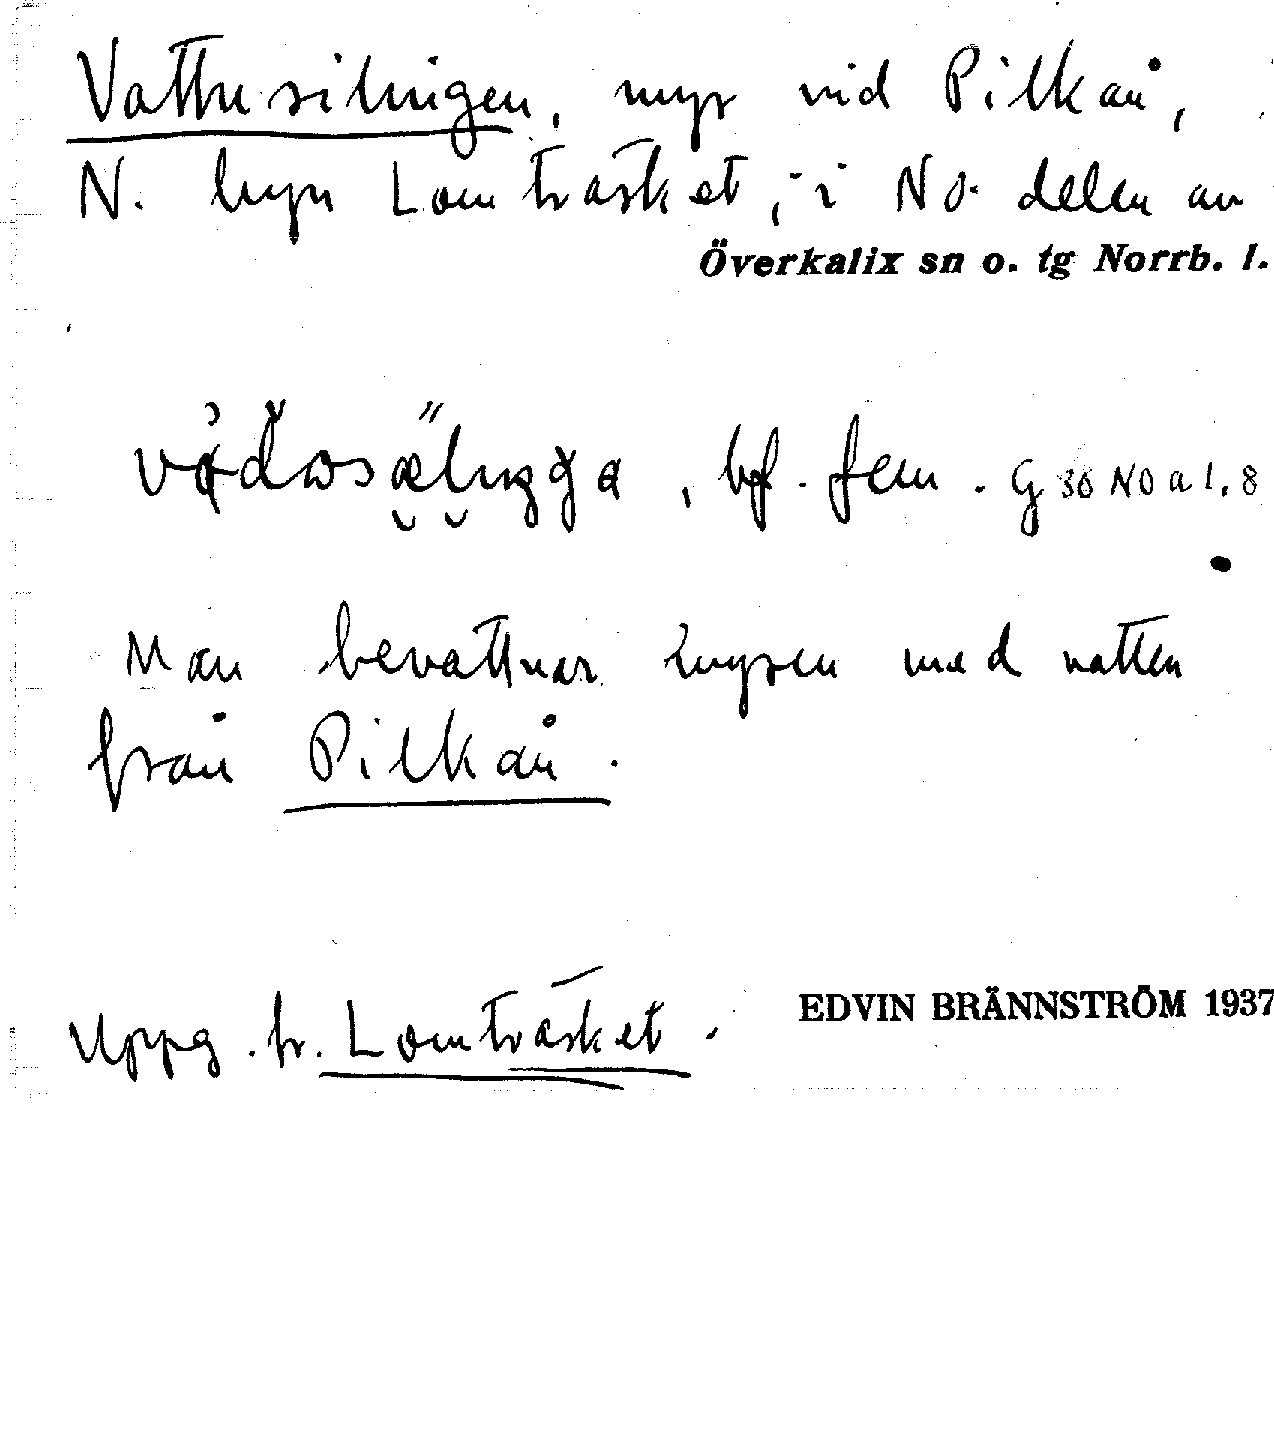 Vattusilningen, myr vid Pilkån,
N. byn Lomträsket, i NO. delen av
Överkalix sn o. tg Norrb. l.
, bf. fem. G 36 NO a 1,8
Man bevattnar myren med vatten
från Pilkån.
Uppg. fr. Lomträsket.
EDVIN BRÄNNSTRÖM 1937